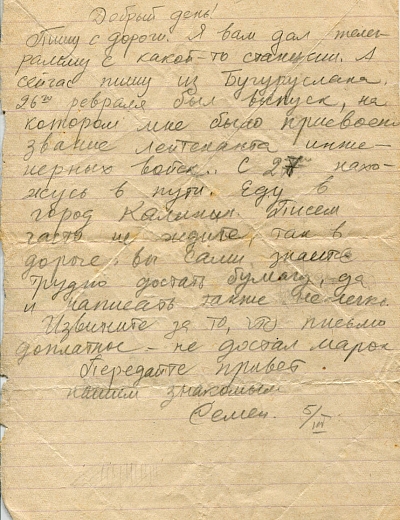 Добрый день!
Пишу с дороги. Я вам дал телег
рамму с какой-то станции. А
сейчас пишу из Бугуруслана.
26го февраля был выпуск, на
котором мне было присвоено
звание лейтенанта инже-
нерных войск. С 27 нахо-
жусь в пути. Еду в
город Калинин. Писем
часто не ждите, так в
дороге вы сами знаете
трудно достать бумагу, да
и написать также нелегко.
Извините за то, что письмо
доплатное - не достал марок
Передайте привет
нашим знакомым
Семен. 5/III